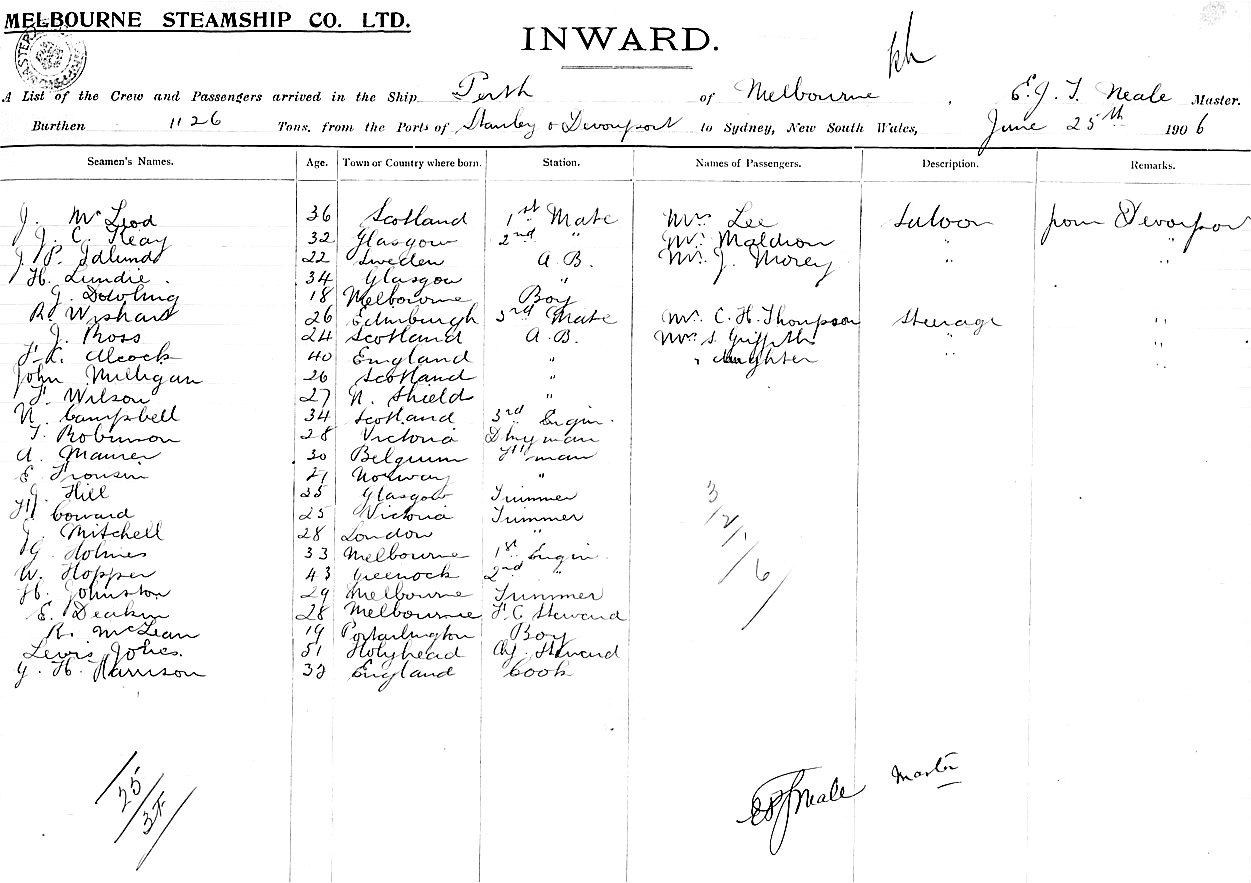 MELBOURNE STEAMSHIP CO. LTD.
INWARD.
A List of the Crew and Passengers arrived in the Ship Perth of Melbourne, E. J. T. Neale Master.
Burthen 1126 Tons, from the Ports of Stanley & Devonport to Sydney, New South Wales, June 25th 1906
Seamen's Names. Age. Town or Country where born. Station. Names of Passengers. Description. Remarks.
J. McLeod 36 Scotland 1st Mate Mrs Lee Saloon from Devonport
J. C. Keay 32 Glasgow 2nd " Mr. Maldron " "
J. P. Idlund 22 Sweden A.B. Mr. J. Morey " "
H. Lundie. 34 Glasgow "
J. Dowling 18 Melbourne Boy
R. Wishart 26 Edinburgh 3rd Mate Mr. C. H. Thompson Steerage "
J. Ross 24 Scotland A.B. Mrs S. Griffiths " "
Alcock 40 England " " daughter "
John Milligan 26 Scotland "
F. Wilson 27 N. Shield "
N. Campbell 34 Scotland 3rd Engin.
T. Robinson 28 Victoria Dkyman
A. Maurer 30 Belgium F'man
E. 27 Norway "
J. Hill 25 Glasgow Trimmer
Coward 25 Victoria Trimmer
J. Mitchell 28 London "
G. Holmes 33 Melbourne 1st Engin.
W. Hopper 43 Greenock 2nd "
H. Johnston 29 Melbourne Trimmer
E. Deakin 28 Melbourne F.C. Steward
R. McLean 19 Portarlington Boy
Lewis Jones. 51 Holyhead Steward
G. H. Harrison 33 England Cook
3/2/1/6/
/25/
Neale Master